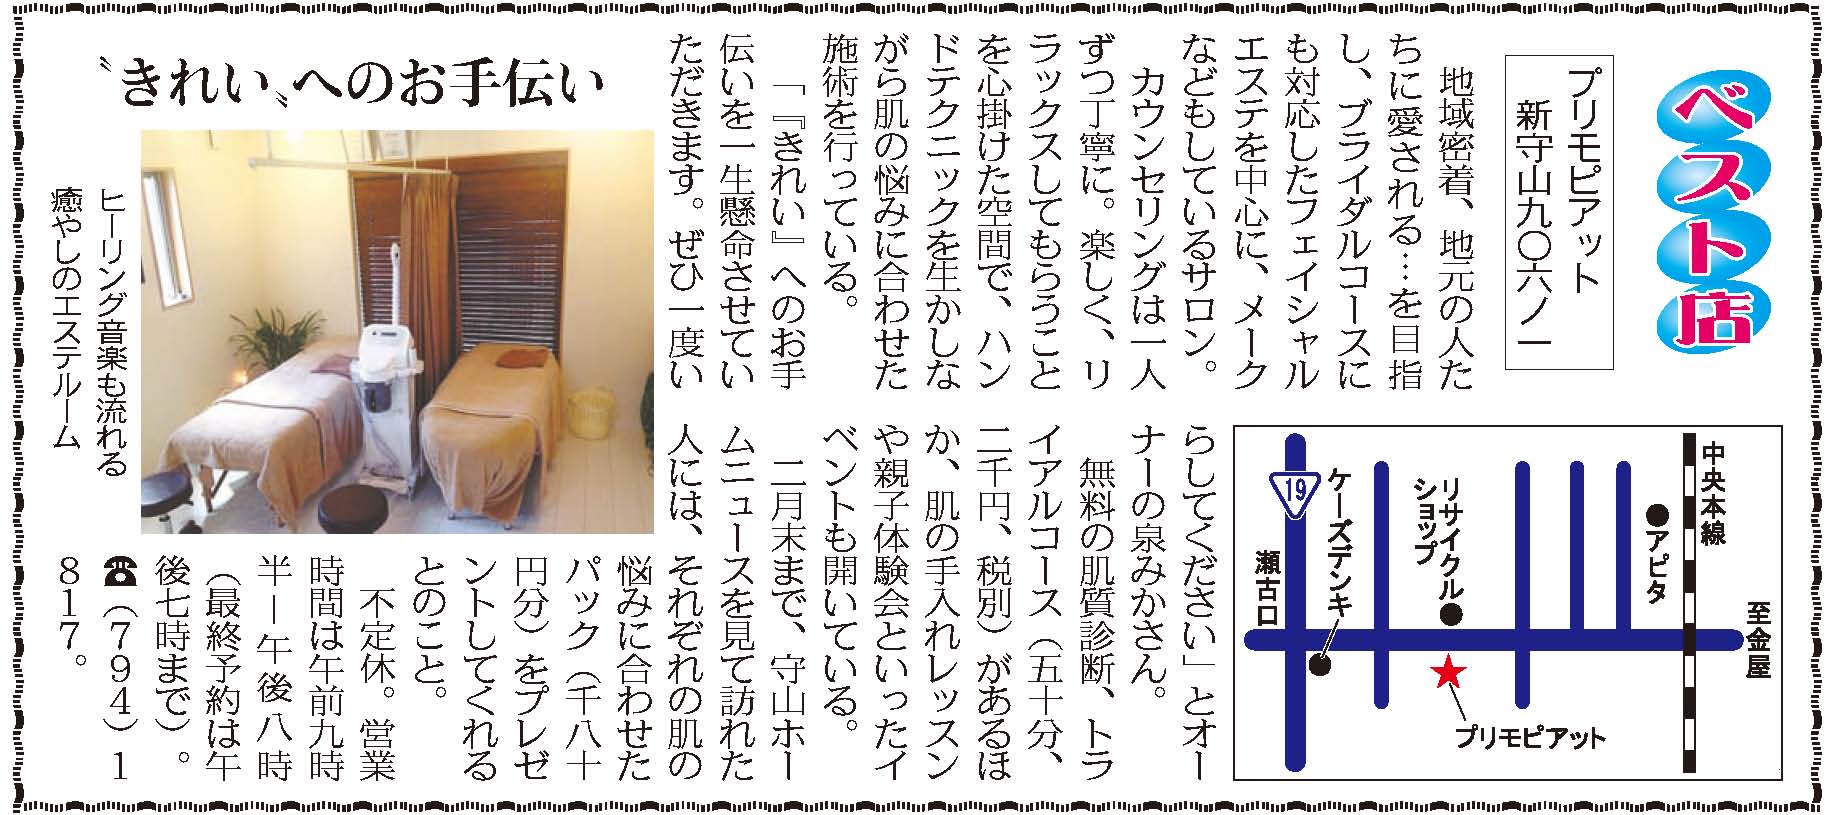 ベスト店
プリモピアット
新守山九〇六ノ一
地域密着、地元の人た
ちに愛される…を目指
し、ブライダルコースに
も対応したフェイシャル
エステを中心に、メーク
などもしているサロン。
カウンセリングは一人
ずつ丁寧に。楽しく、リ
ラックスしてもらうこと
を心掛けた空間で、ハン
ドテクニックを生かしな
がら肌の悩みに合わせた
施術を行っている。
「『きれい』へのお手
伝いを一生懸命させてい
ただきます。ぜひ一度い
らしてください」とオー
ナーの泉みかさん。
無料の肌質診断、トラ
イアルコース（五十分、
二千円、税別）があるほ
か、肌の手入れレッスン
や親子体験会といったイ
ベントも開いている。
二月末まで、守山ホー
ムニュースを見て訪れた
人には、それぞれの肌の
悩みに合わせた
パック（千八十
円分）をプレゼ
ントしてくれる
とのこと。
不定休。営業
時間は午前九時
半－午後八時
（最終予約は午
後七時まで）。
☎（794）1
817。
〝きれい〟へのお手伝い
ヒーリング音楽も流れる
癒やしのエステルーム
中央本線
至金屋
アピタ
リサイクル
ショップ
ケーズデンキ
19
瀬古口
プリモピアット